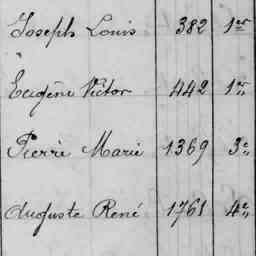 Joseph Louis 382 1er
"
Eugène Victor 442 1er
Pierre Marie 1369 3e
Auguste René 1761 4e